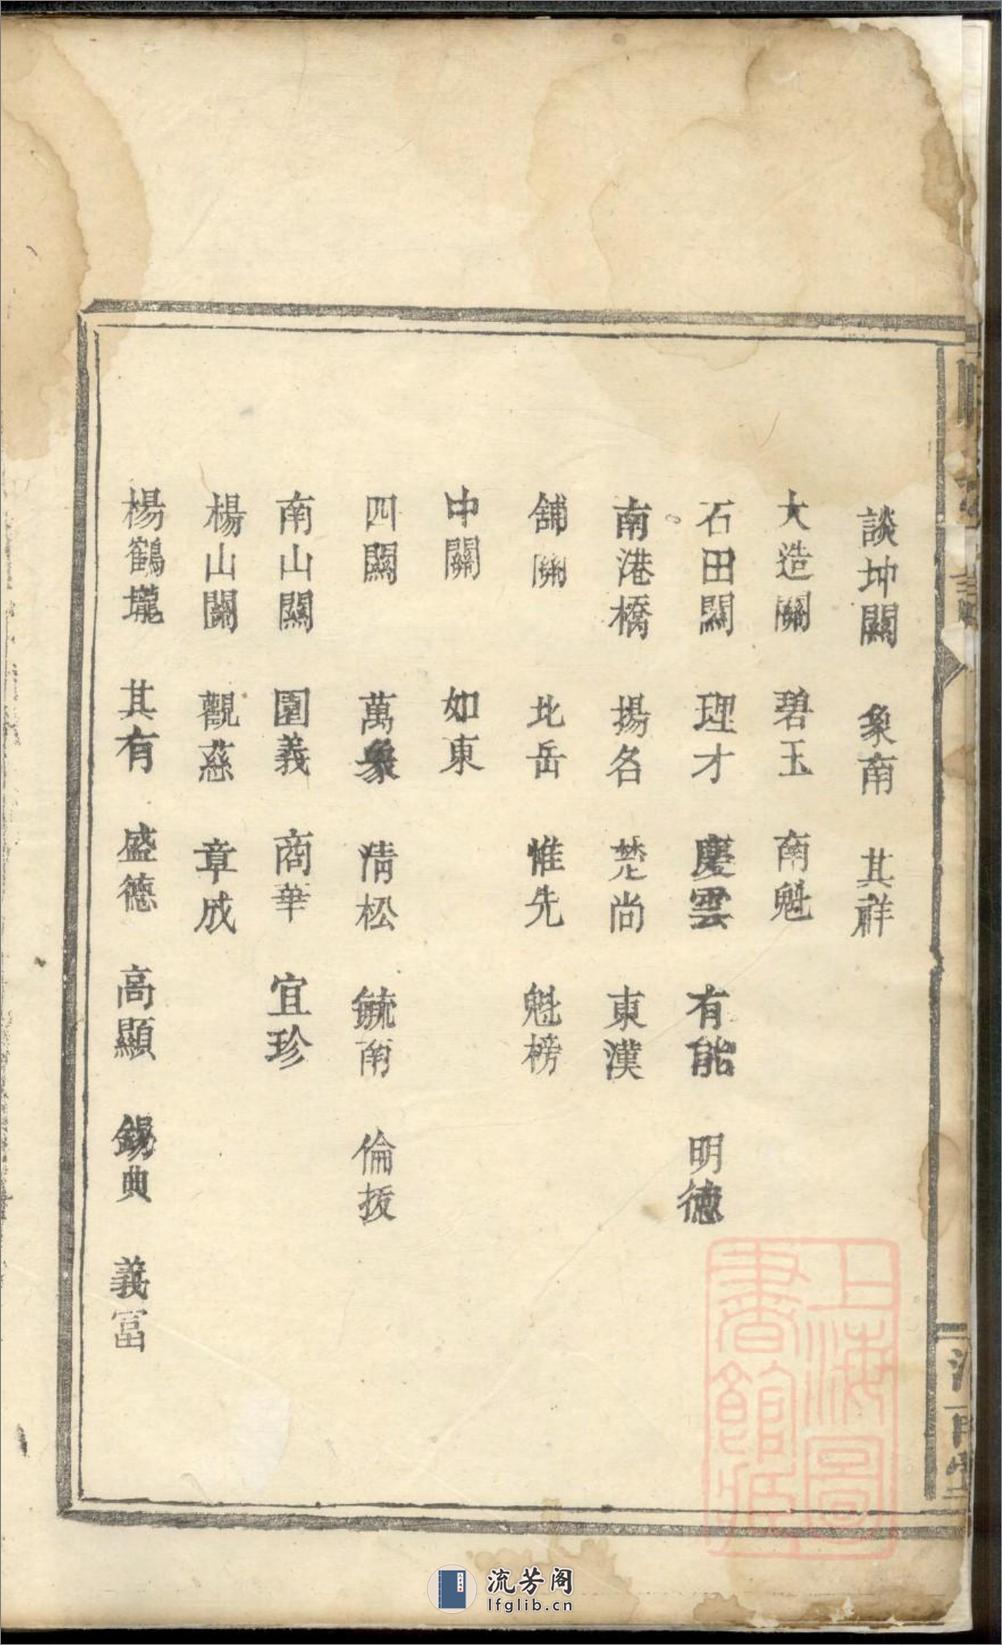 談坤關 象南 其祥
大造關 碧玉 南魁
石田關 理才 慶雲 有能 明德
南港橋 揚名 楚尚 東漢
舖關 北岳 惟先 魁榜
中關 如東
四關 萬象 清松 毓南 倫拔
南山關 園義 商華 宜珍
楊山關 觀慈 章成
楊鶴壠 其有 盛德 高顯 錫典 義富
上海圖
書館藏
流芳阁
lfglib.cn